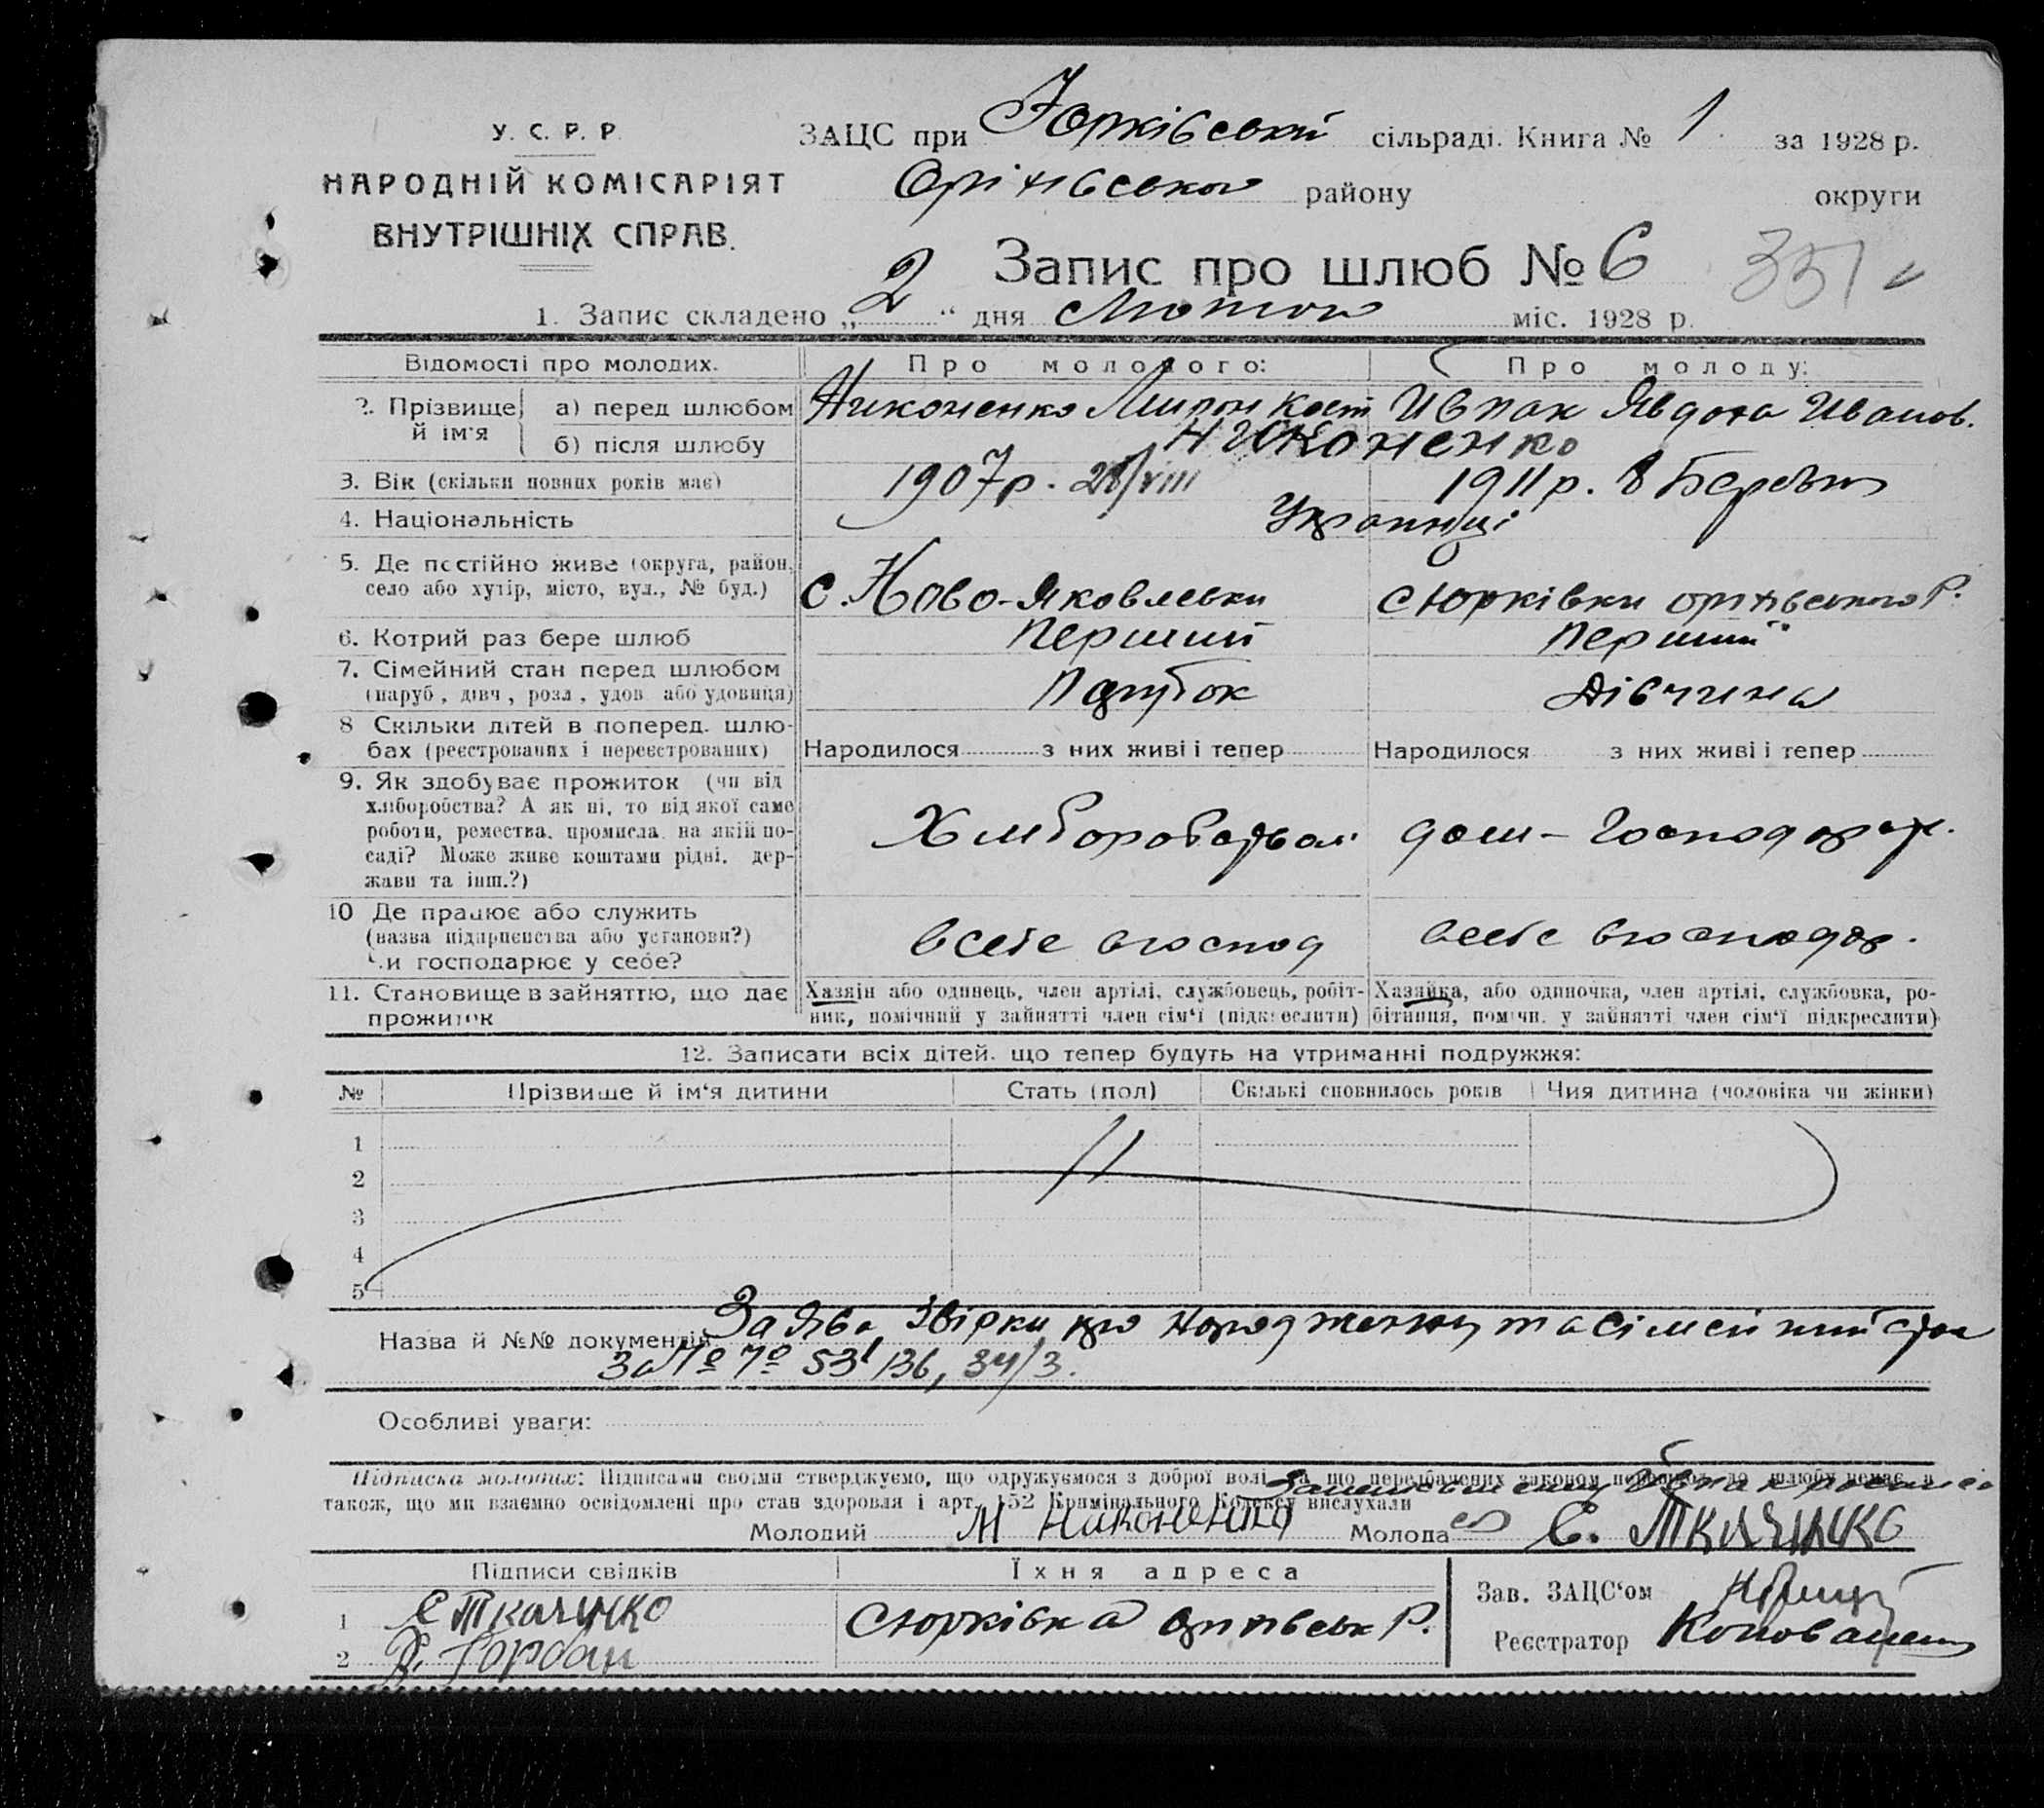 У. С. Р. Р.
НАРОДНІЙ КОМІСАРІЯТ
ВНУТРІШНІХ СПРАВ.
ЗАЦС при Юрківській сільраді. Книга № 1. за 1928 р.
Оріхівського району округи
Запис про шлюб № 6 351
1. Запис складено „2“ дня Лютого міс. 1928 р.
Відомості про молодих. Про молодого: Про молоду:
2. Прізвище й ім'я а) перед шлюбом Никоненко Мирон Кост. Ивпак Явдоха Иванов.
б) після шлюбу Никоненко
3. Вік (скільки повних років має) 1907 р. 28/VIII 1911 р. 8 Березня
4. Національність Українці
5. Де постійно живе (округа, район, село або хутір, місто, вул., № буд.) С. Ново-Яковлевки с Юрківки оріхівського Р.
6. Котрий раз бере шлюб Перший Перший
7. Сімейний стан перед шлюбом (паруб., дівч., розл., удов. або удовиця) Парубок Дівчина
8 Скільки дітей в поперед. шлюбах (реєстрованих і нереєстрованих) Народилося з них живі і тепер Народилося з них живі і тепер
9. Як здобуває прожиток (чи від хліборобства? А як ні, то від якої саме роботи, ремества, промисла, на якій посаді? Може живе коштами рідні, держави та інш.?) дом-господар.
10 Де працює або служить (назва підприємства або установи?) Чи господарює у себе? всебе вгоспод всебе вгосподар.
11. Становище в зайняттю, що дає прожиток Хазяїн або одинець, член артілі, службовець, робітник, помічний у зайнятті член сім'ї (підкреслити) Хазяйка, або одиночка, член артілі, службовка, робітниця, помічн. у зайнятті член сім'ї підкреслити)
12. Записати всіх дітей, що тепер будуть на утриманні подружжя:
№ Прізвище й ім'я дитини Стать (пол) Скількі сповнилось років Чия дитина (чоловіка чи жінки)
1
2
3
4
5
Назва й №№ документів Заява, звірки про народження та сімейний стан
За № № 53/136, 34/3.
Особливі уваги:
Підписка молодих: Підписами своїми стверджуємо, що одружуємося з доброї волі, та що передбачених законом перешкод до шлюбу немає, а
також, що ми взаємно освідомлені про стан здоровля і арт. 152 Кримінального Кодексу вислухали
Молодий М Никоненко Молода Є. Ткачинко
Підписи свідків Їхня адреса
1 Є Ткачинко с Юрківка оріхівськ Р.
2 Горбан
Зав. ЗАЦС'ом
Реєстратор Коновалень